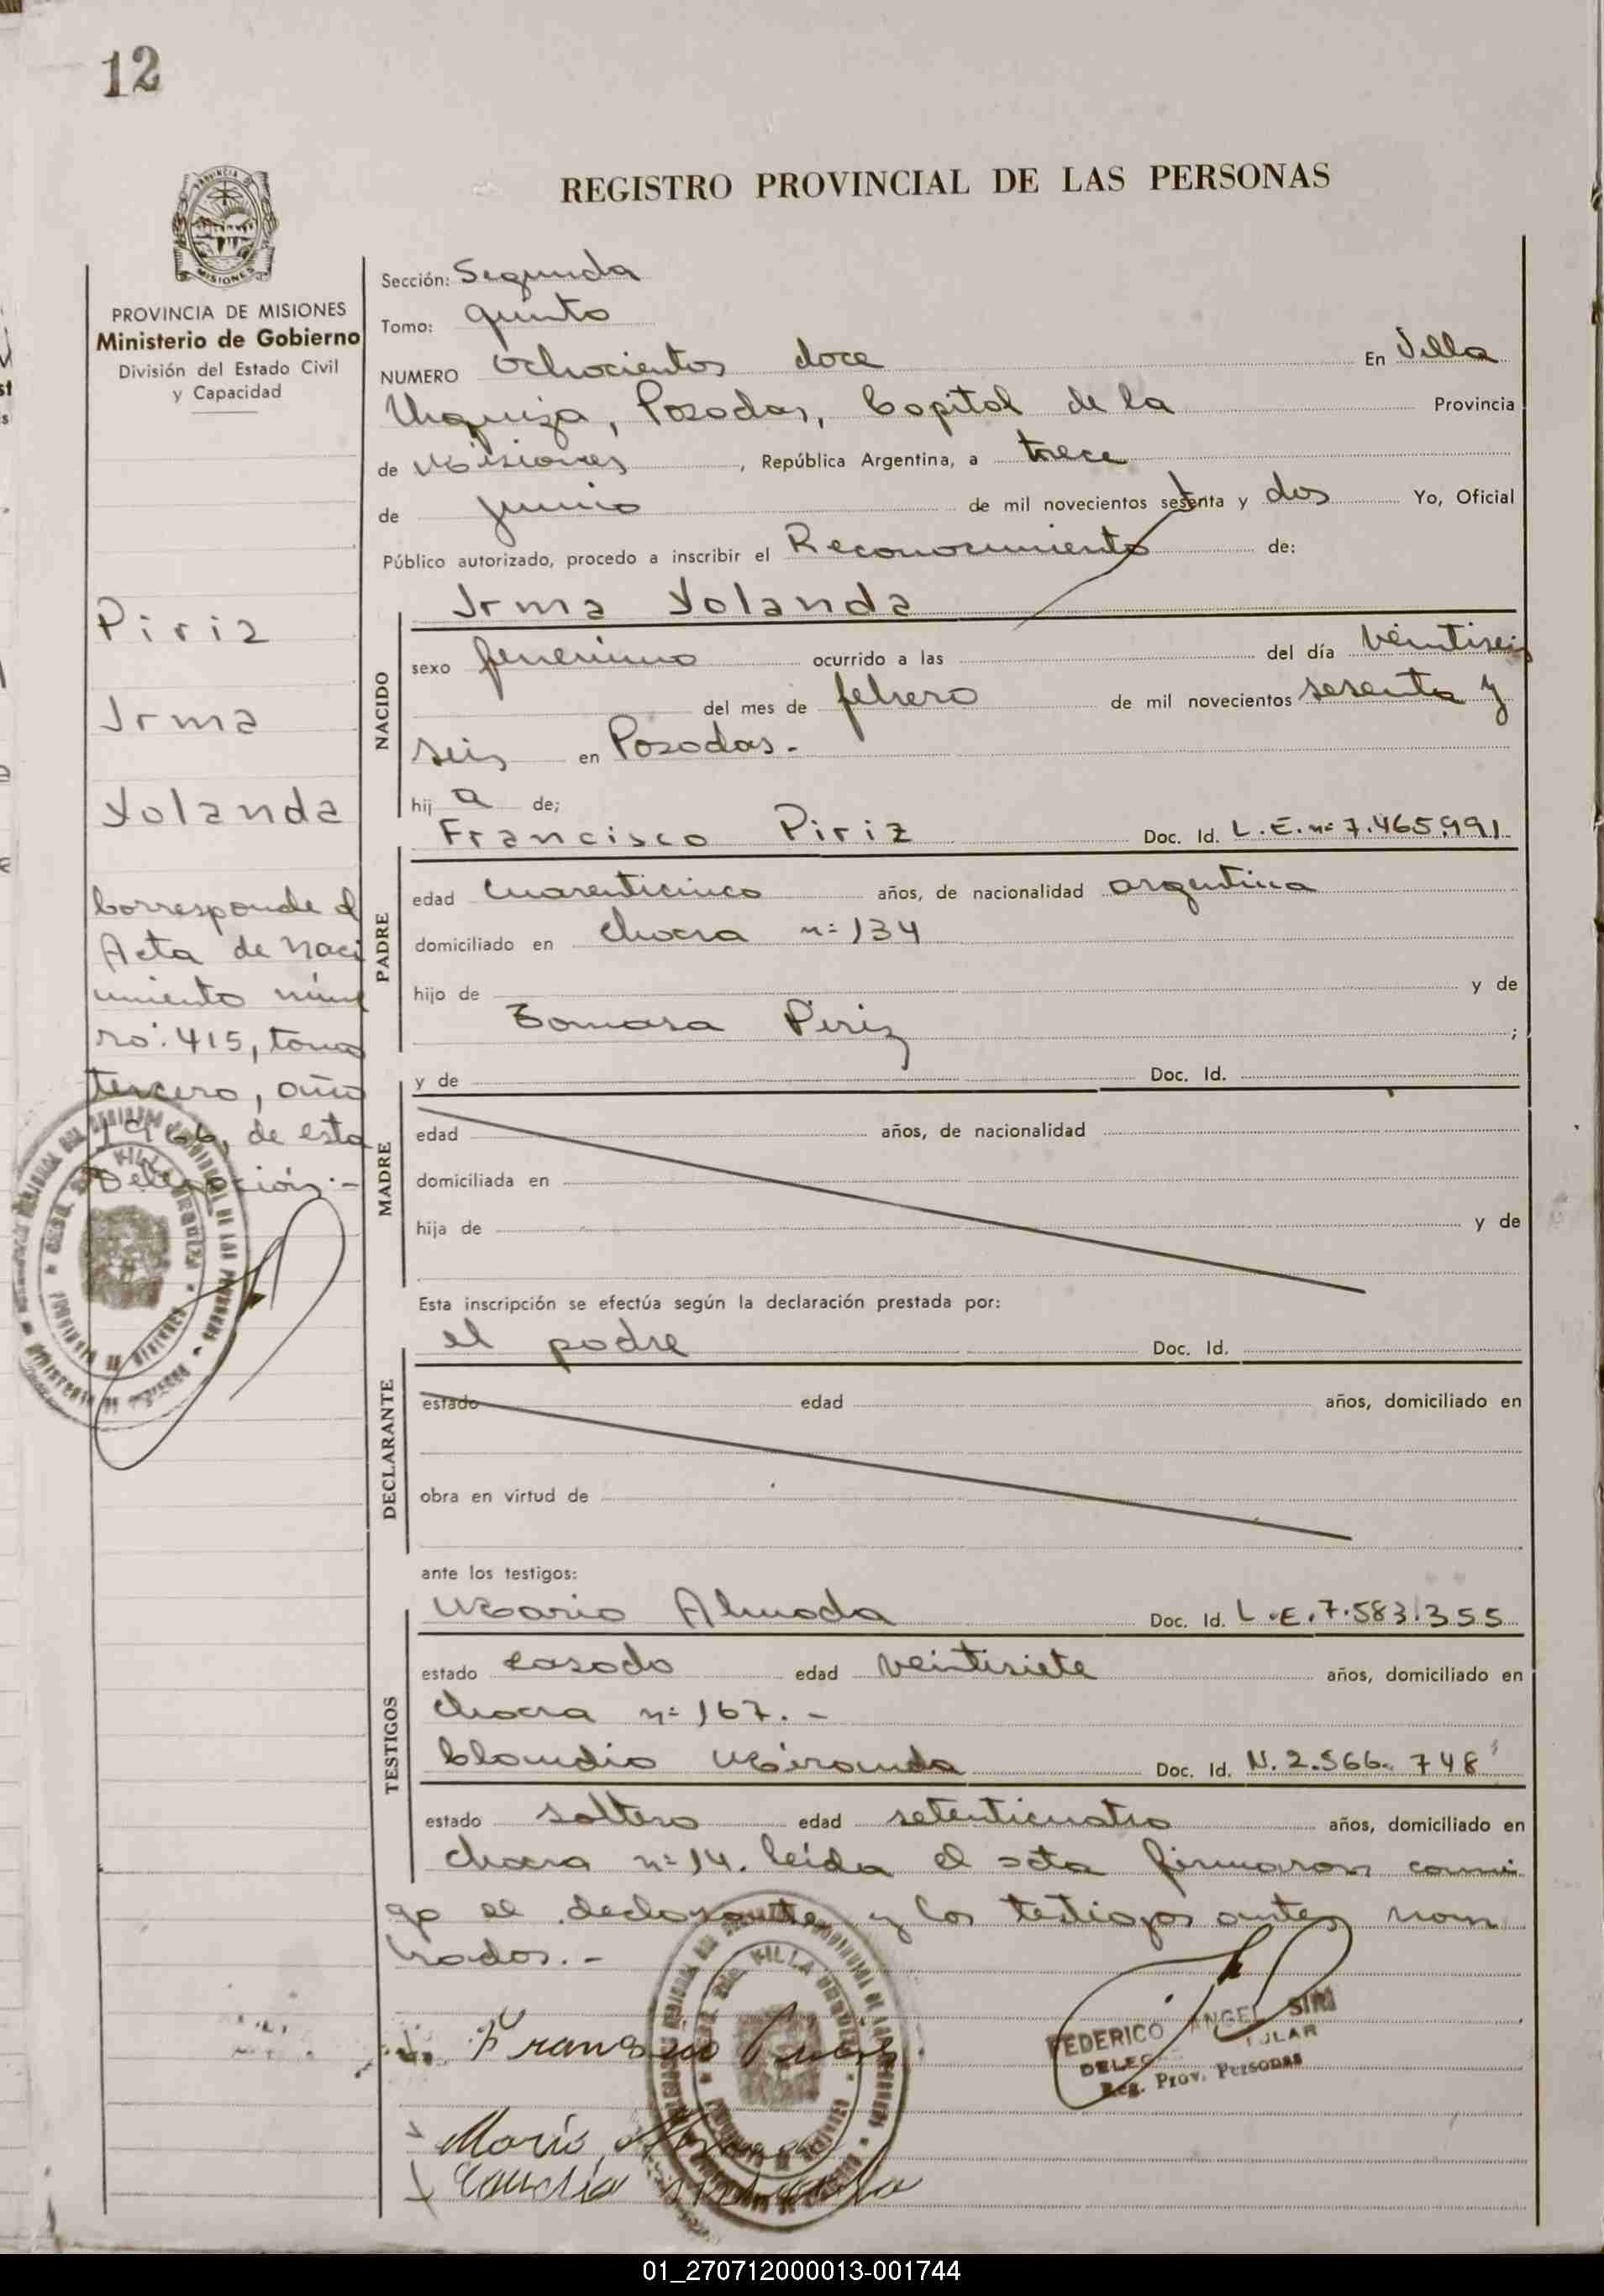 12
REGISTRO PROVINCIAL DE LAS PERSONAS
PROVINCIA DE MISIONES
Ministerio de Gobierno
División del Estado Civil
y Capacidad
Piriz
Irma
Yolanda
Corresponde al
Acta de naci
miento núme
ro: 415, tomo
tercero, año
1966, de esta
Delegación.-
Sección: Segunda
Tomo: quinto
NUMERO ochocientos doce En Villa
Urquiza, Posadas, Capital de la Provincia
de Misiones, República Argentina, a trece
de junio de mil novecientos setenta y dos Yo, Oficial
Público autorizado, procedo a inscribir el Reconocimiento de:
Irma Yolanda
NACIDO
sexo femenino ocurrido a las del día veintiseis
del mes de febrero de mil novecientos sesenta y
seis en Posadas.-
hij a de;
Francisco Piriz Doc. Id. L.E. nº 7.465.991
PADRE
edad cuarenticinco años, de nacionalidad argentina
domiciliado en chacra nº 134
hijo de y de
Tomasa Piriz ;
y de Doc. Id.
MADRE
edad años, de nacionalidad
domiciliada en
hija de y de
Esta inscripción se efectúa según la declaración prestada por:
el padre Doc. Id.
DECLARANTE
estado edad años, domiciliado en
obra en virtud de
ante los testigos:
Mario Almada Doc. Id. L.E. 7.583.355
TESTIGOS
estado casado edad veintisiete años, domiciliado en
chacra nº 167.-
Claudio Miranda Doc. Id. N. 2.566.748
estado soltero edad setenticuatro años, domiciliado en
chacra nº 14. leída el acta firmaron conmi
go el declarante y los testigos antes nom
brados.-
Francisco Piriz
FEDERICO ANGEL SIRI
Reg. Prov. Personas
Mario
01_270712000013-001744